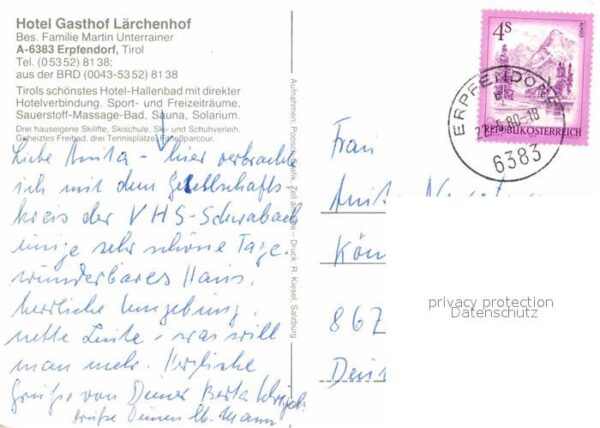 Hotel Gasthof Lärchenhof
Bes. Familie Martin Unterrainer
A-6383 Erpfendorf, Tirol
Tel. (05352) 8138;
aus der BRD (0043-5352) 8138
Tirols schönstes Hotel-Hallenbad mit direkter
Hotelverbindung. Sport- und Freizeiträume.
Sauerstoff-Massage-Bad, Sauna, Solarium.
Drei hauseigene Skilifte, Skischule, Ski- und Schuhverleih.
Geheiztes Freibad, drei Tennisplätze,
Liebe Anita - hier verbrachte
ich mit dem Gesellschafts-
kreis der VHS-Schwabach
einige sehr schöne Tage.
wunderbares Haus,
herrliche Umgebung,
nette Leute - was will
man mehr. Herzliche
Grüße von Deiner Berta
Grüße Deinen lb. Mann
Aufnahmen: Zell - Druck: R. Kiesel, Salzburg
4s
REPUBLIK ÖSTERREICH
ERPFENDORF
5.80-18
6383
Frau
Anit
Kön
867
Deu
privacy protection
Datenschutz